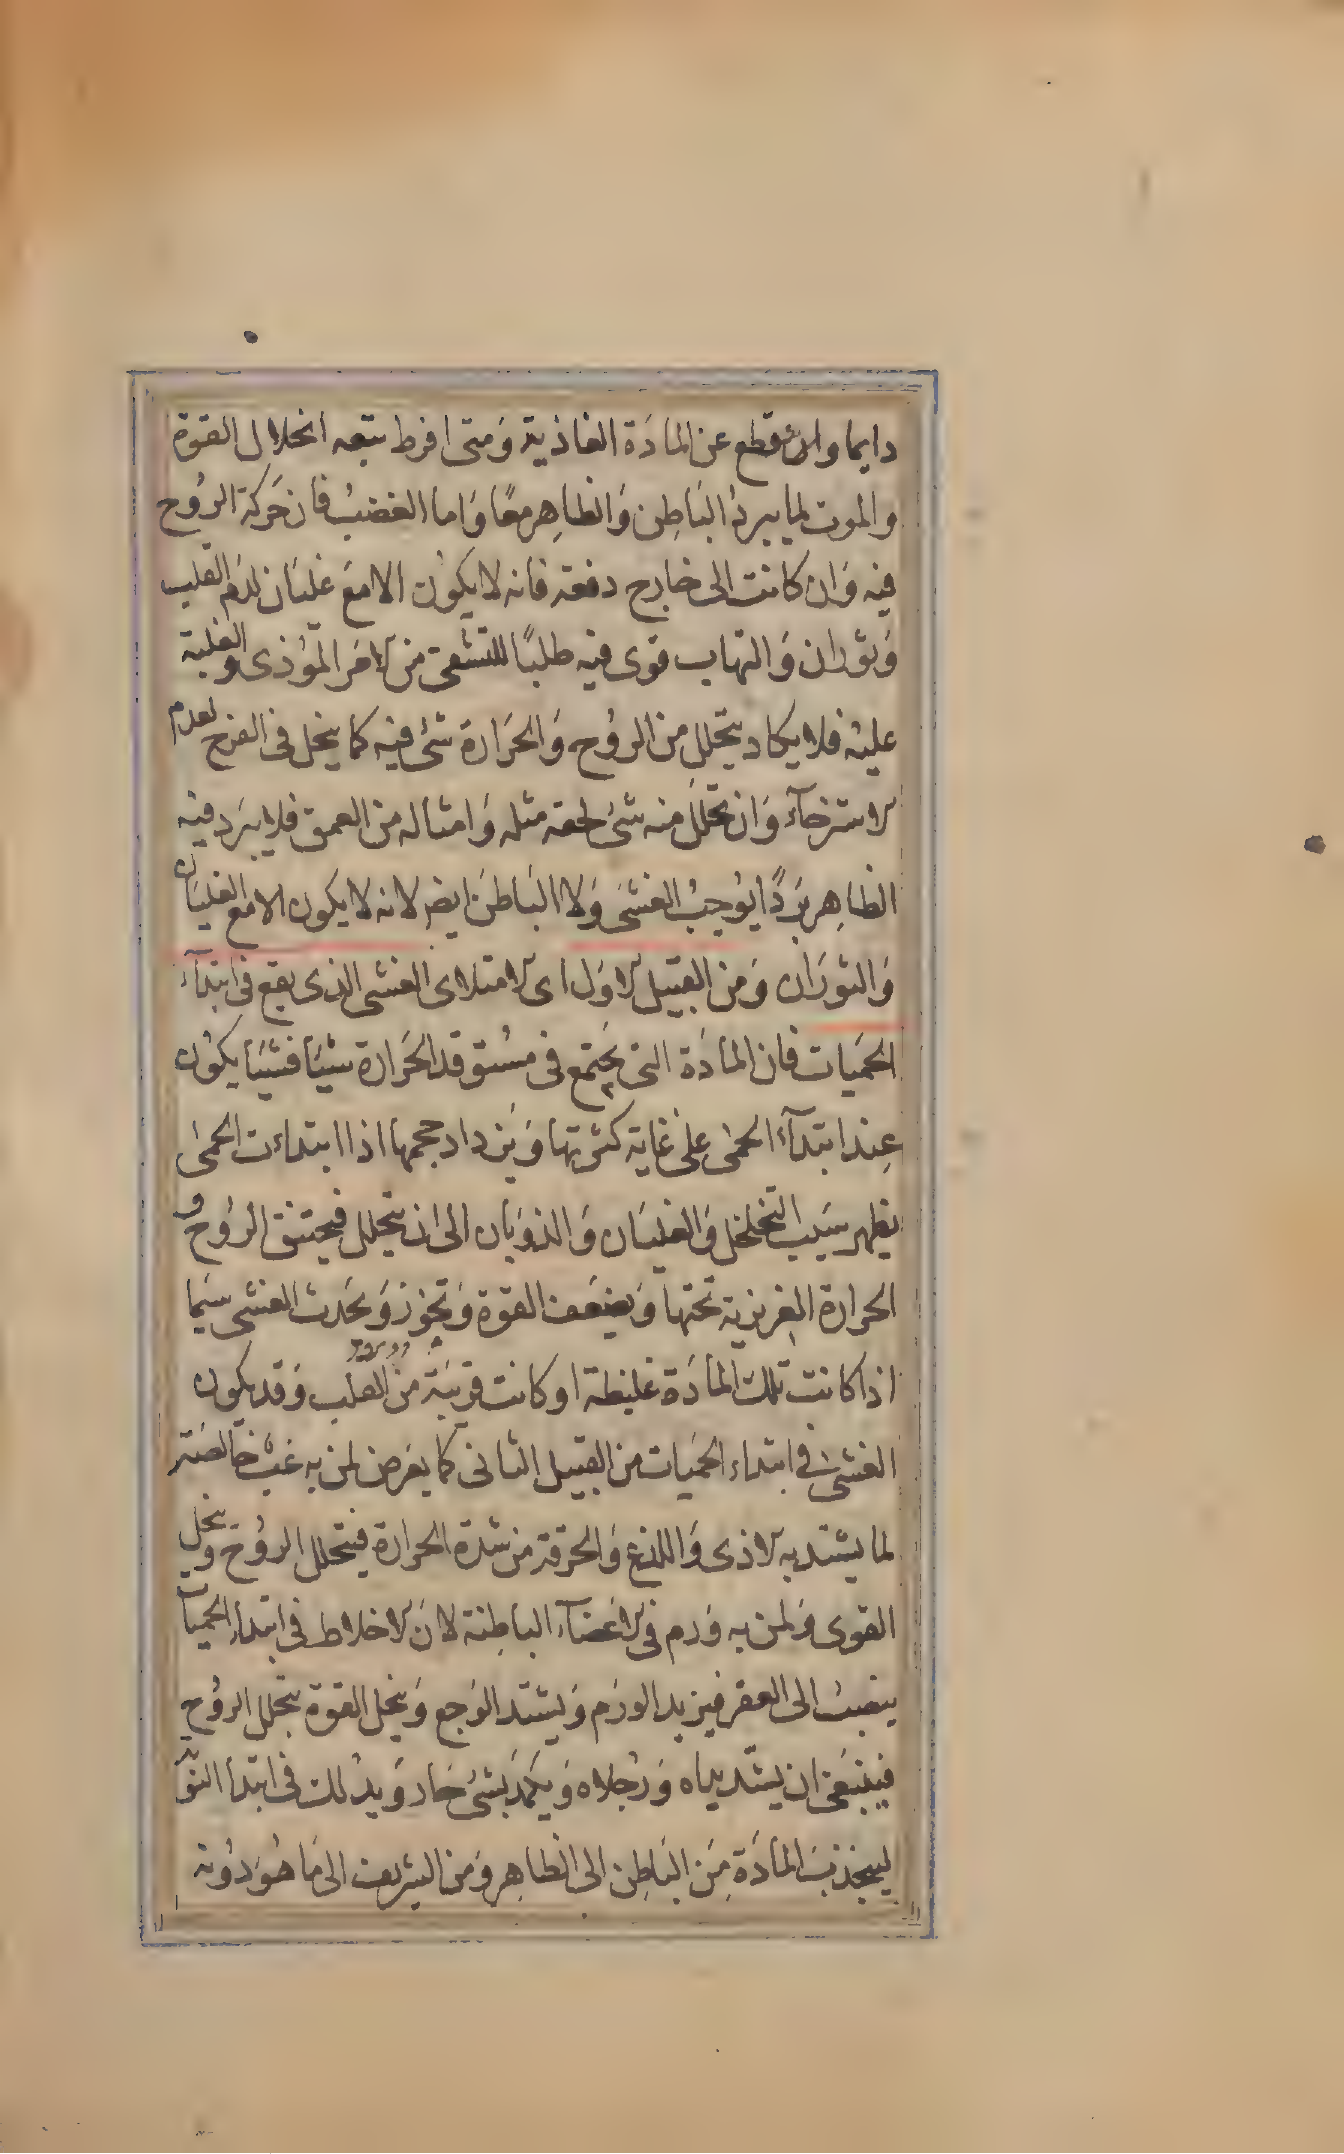 دايما وان قطع عن المادة الغاذية ومتى افرط تبعه انحلال القوة
والموت لما يبرد الباطن والظاهر معا واما الغضب فان حركة الروح
فيه وان كانت الى خارج دفعة فانه لا يكون الا مع غليان لدم القلب
وثوران والتهاب قوى فيه طلبا للتشفى من الامر الموذى والغلبة
عليه فلا يكاد يتحلل من الروح والحرارة شئ فيه كما ينحل فى الفرح لعدم
الاسترخآء وان تحلل منه شئ لحقه مثله وامثاله من العمق فلا يبرد فيه
الظاهر بردا يوجب الغشى ولا الباطن ايضا لانه لا يكون الا مع الغليان
والثوران ومن القبيل الاول اى الامتلاى الغشى الذى يقع فى ابتدآء
الحميات فان المادة التى يجتمع فى مستوقد الحرارة شيئا فشيئا يكون
عند ابتدآء الحمى على غاية كثرتها ويزداد حجمها اذا ابتداءت الحمى
يظهر سبب التخلخل والغليان والذوبان الى ان يتحلل فيختنق الروح و
الحرارة الغريزية تحتها ويضعف القوة وتخور ويحدث الغشى سيما
اذا كانت تلك المادة غليظة او كانت قريبة من القلب وقد يكون
الغشى فى ابتداء الحميات من القبيل الثانى كما يعرض لمن به غب خالصة
لما يشتد به الاذى واللذع والحرقة من شدة الحرارة فيتحلل الروح وينحل
القوى ولمن به ورم فى الاعضآء الباطنة لان الاخلاط فى ابتدآء الحميات
ينصب الى العقر فيزيد الورم ويشتد الوجع وينحل القوة بتحلل الروح
فينبغى ان يشد يداه ورجلاه ويكمد بشئ حار ويدلك فى ابتدا النوبة
لينجذب المادة من الباطن الى الظاهر ومن الشريف الى ما هو دونه